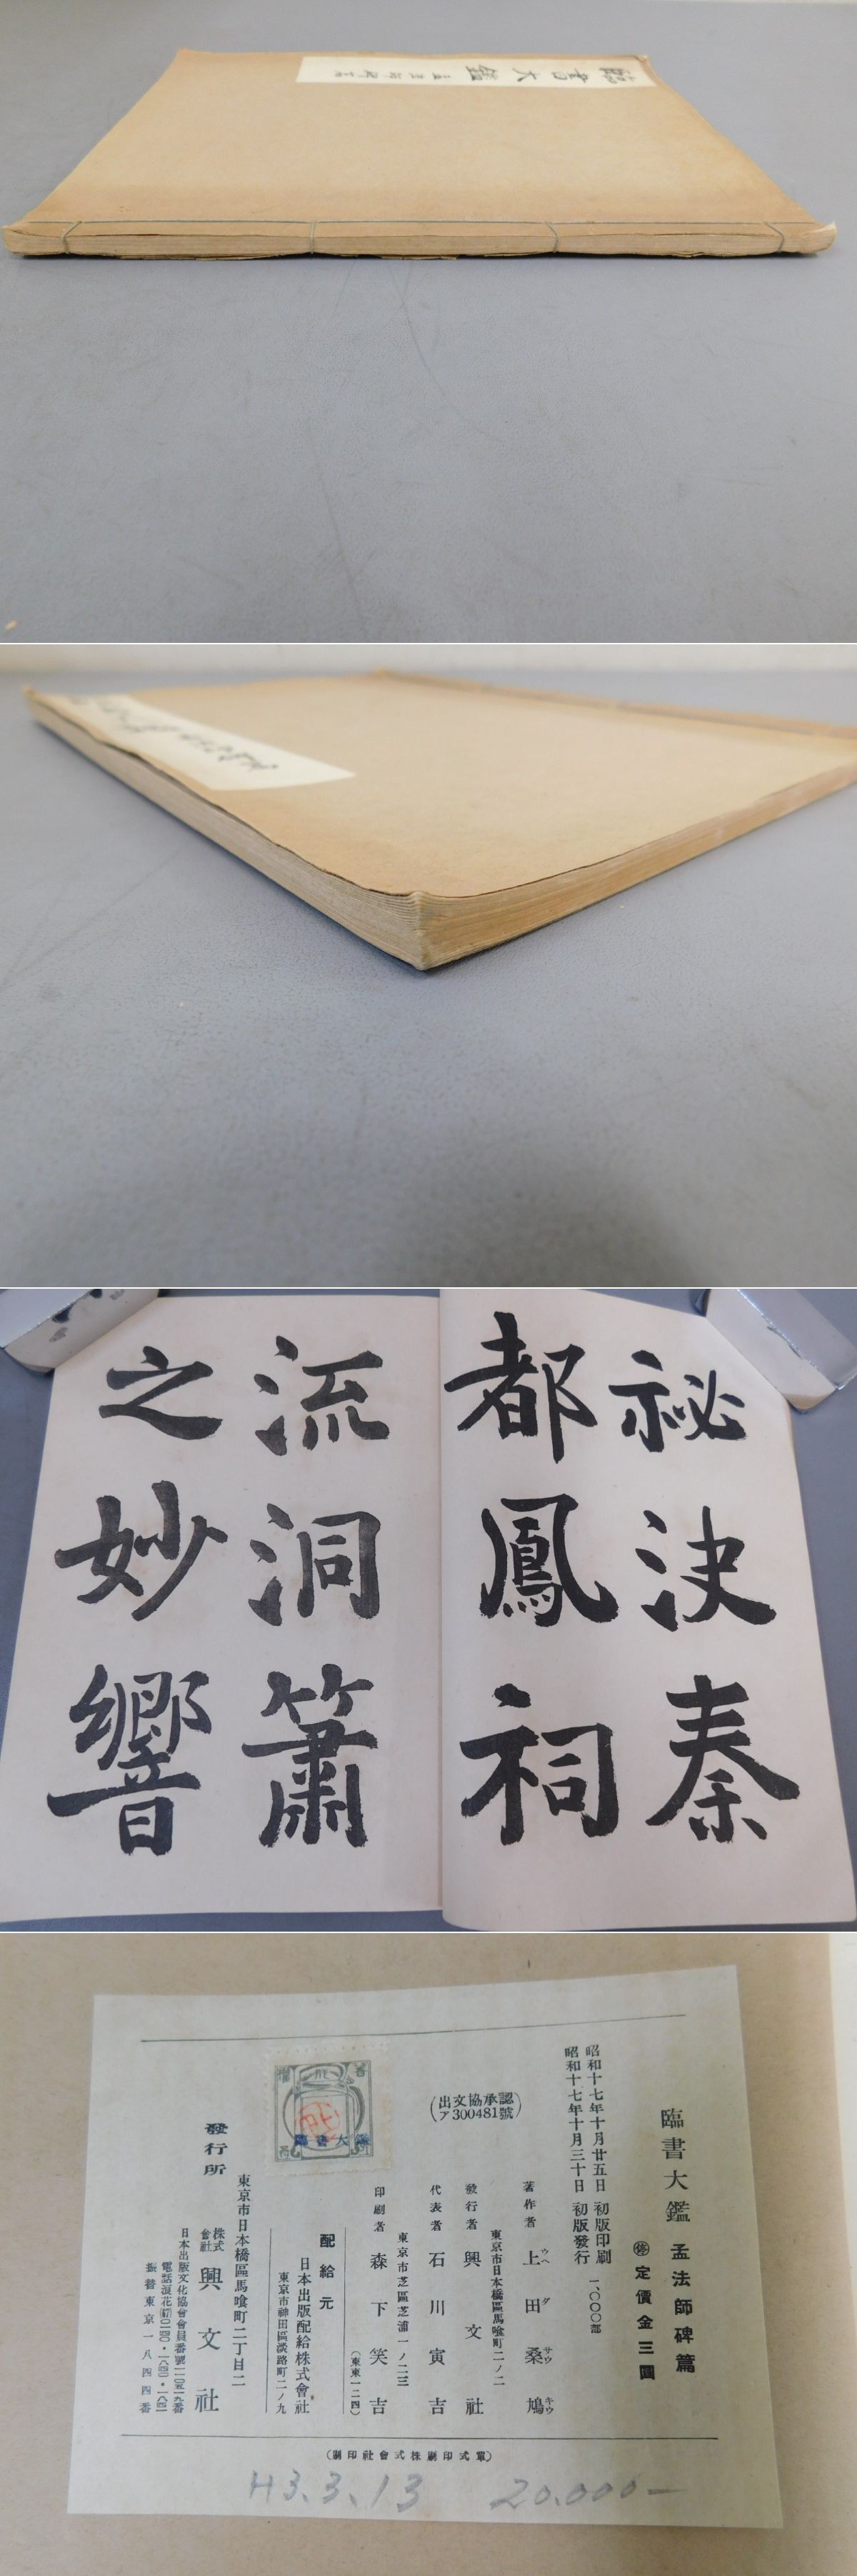 臨書大鑑
祕決秦
都鳳祠
流洞簫
之妙響
臨書大鑑 孟法師碑篇
㊡定價金三圓
昭和十七年十月廿五日 初版印刷
一、〇〇〇部
昭和十七年十月三十日 初版發行
(出文協承認
ア300481號)
著作者 上田桑鳩
ウヘ ダ サウ キウ
東京市日本橋區馬喰町二ノ二
發行者 興文社
代表者 石川寅吉
東京市芝區芝浦一ノ二三
印刷者 森下笑吉
(東東一二四)
配給元
日本出版配給株式會社
東京市神田區淡路町二ノ九
東京市日本橋區馬喰町二丁目二
發行所 株式會社 興文社
日本出版文化協會會員番號
振替東京一八四四番
臨書大鑑
(單式印刷株式會社印刷)
H3.3.13 20.000-